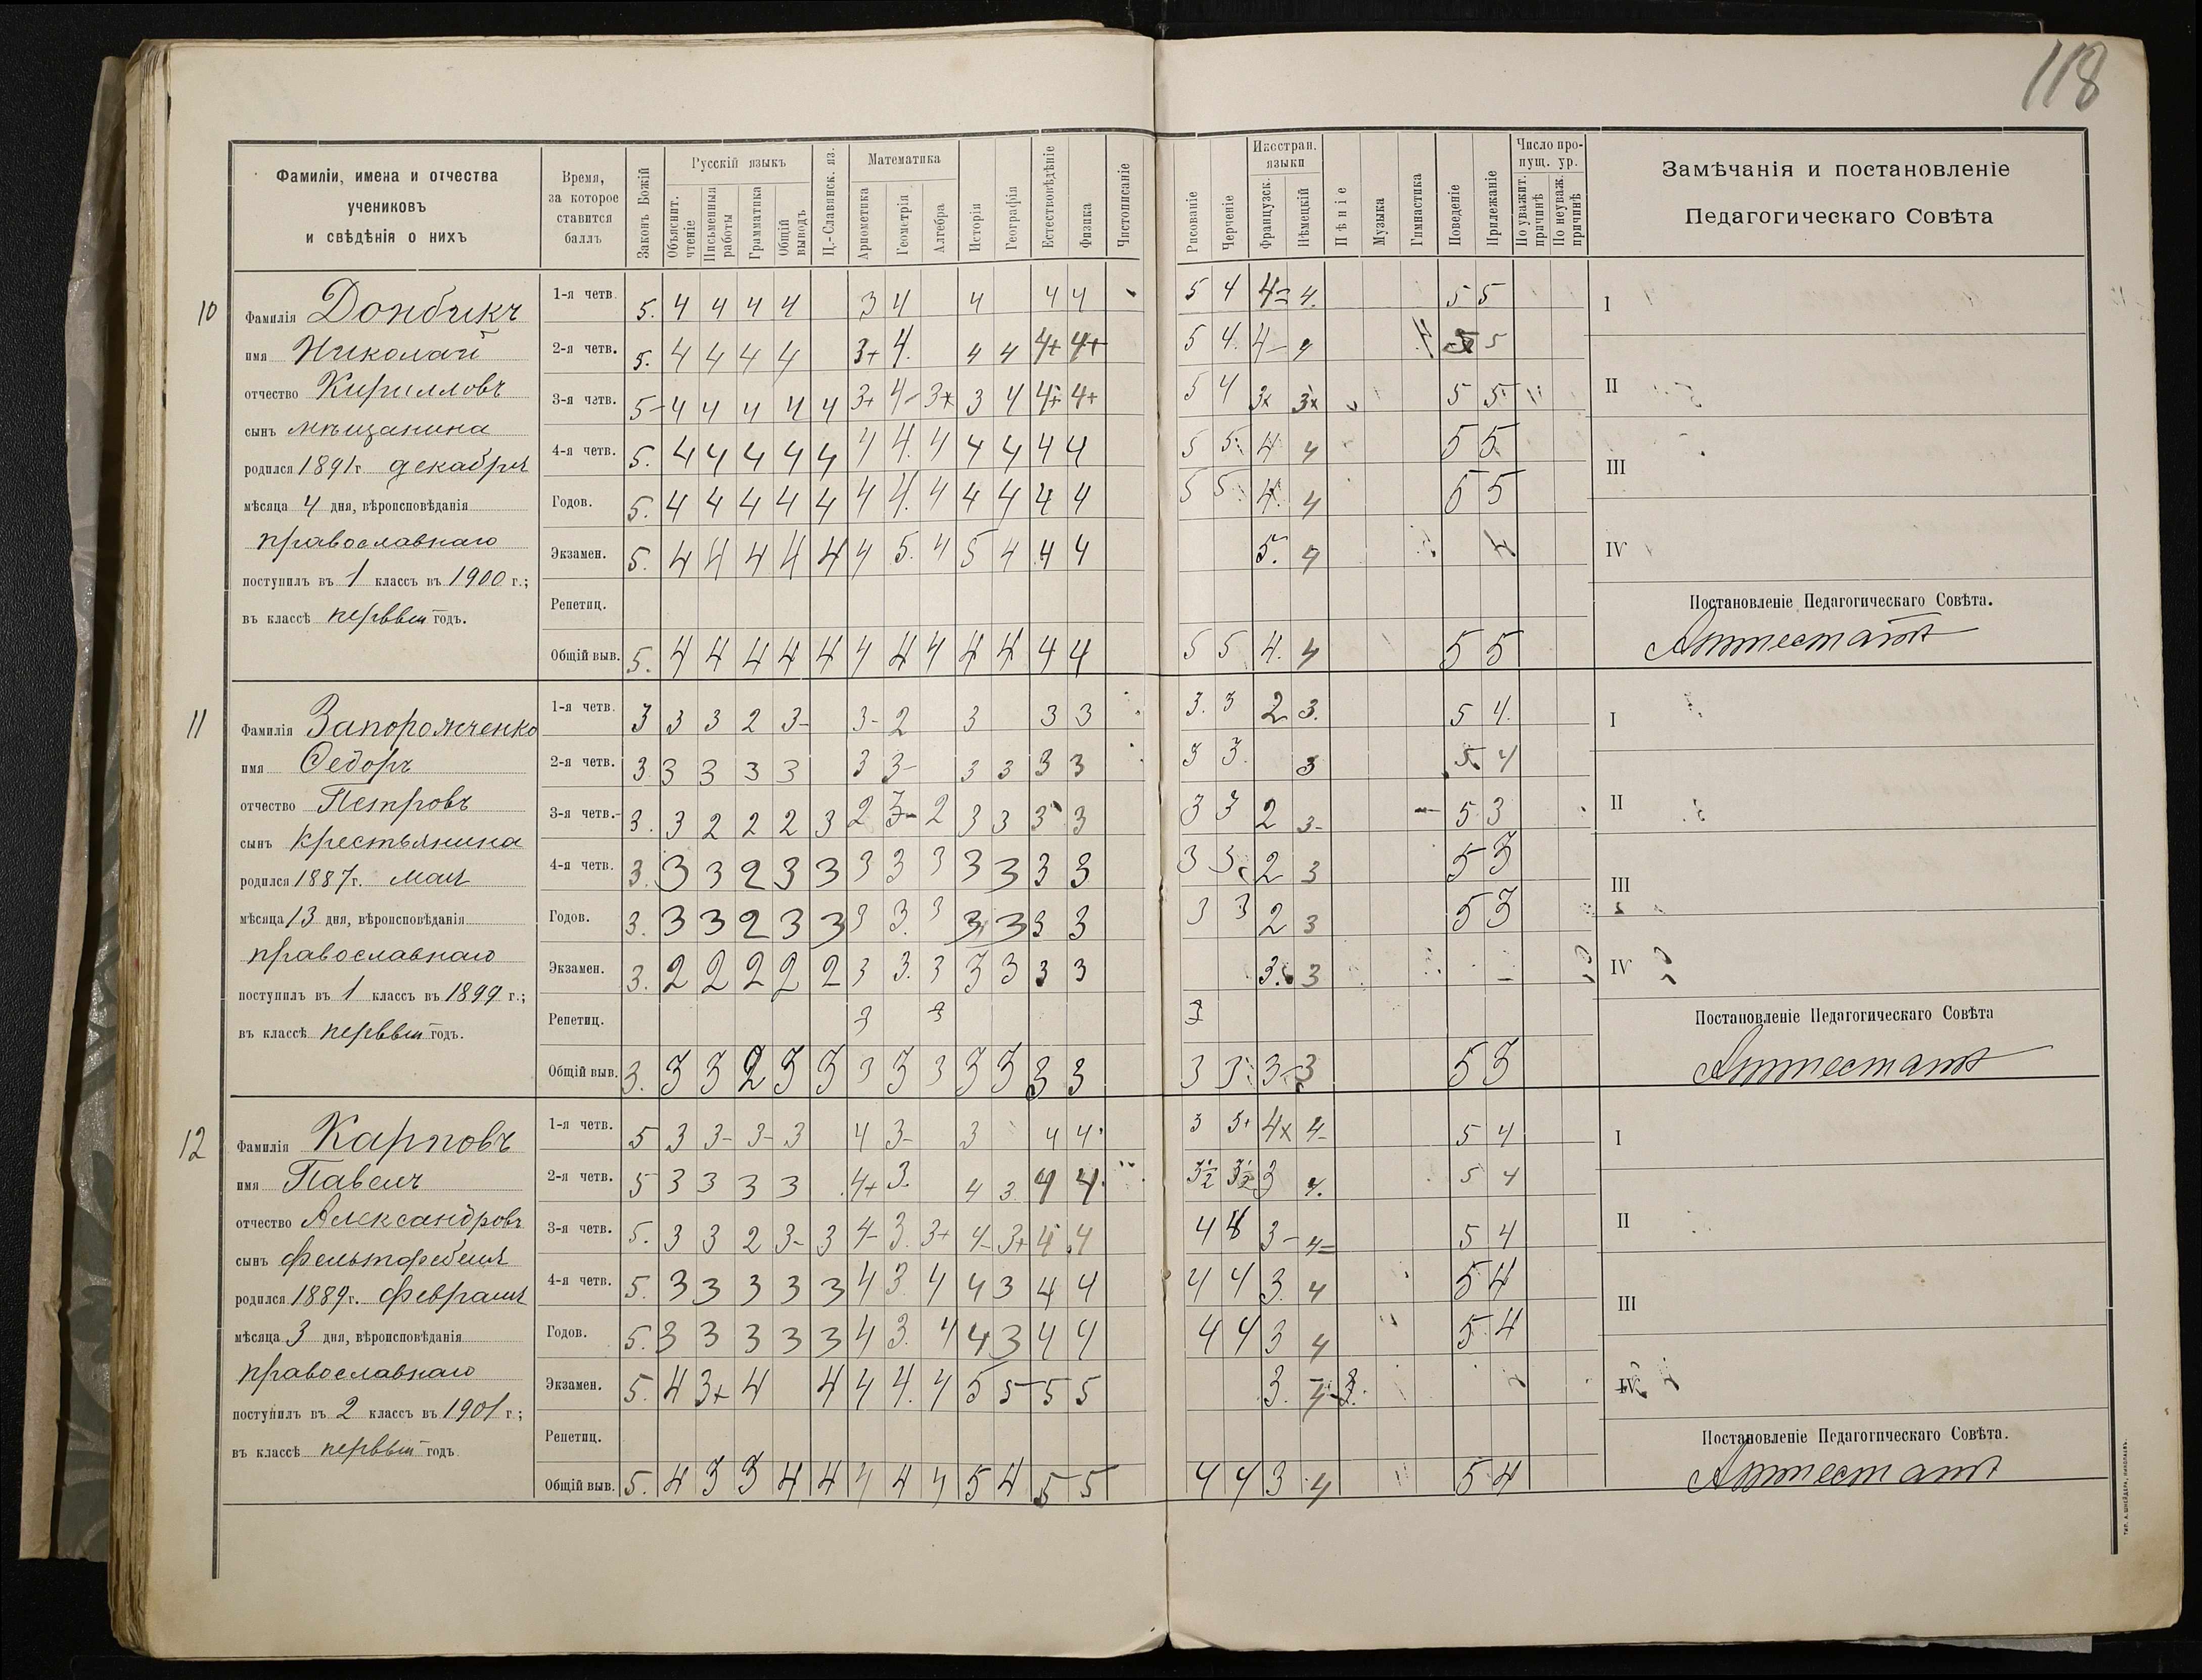 118
Фамиліи, имена и отчества
учениковъ
и свѣдѣнія о нихъ
Время,
за которое
ставится
баллъ
Законъ Божій
Русскій языкъ
Объяснит. чтеніе
Письменныя работы
Грамматика
Общій выводъ
Ц.-Славянск. яз.
Математика
Ариѳметика
Геометрія
Алгебра
Исторія
Географія
Естествовѣдѣніе
Физика
Чистописаніе
Рисованіе
Черченіе
Иностран. языки
Французск.
Нѣмецкій
Пѣніе
Музыка
Гимнастика
Поведеніе
Прилежаніе
Число пропущ. ур.
По уважит. причинѣ
По неуваж. причинѣ
Замѣчанія и постановленіе
Педагогическаго Совѣта
10
Фамилія Донбикъ
имя Николай
отчество Кирилловъ
сынъ мѣщанина
родился 1891 г. декабря
мѣсяца 4 дня, вѣроисповѣданія
православнаго
поступилъ въ 1 классъ въ 1900 г.;
въ классѣ первый годъ.
1-я четв. 5. 4 4 4 4 3 4 4 4 4 5 4 4= 4. 5 5
2-я четв. 5. 4 4 4 4 3+ 4. 4 4 4+ 4+ 5 4. 4- 4 4 5 5
3-я четв. 5- 4 4 4 4 4 3+ 4- 3+ 3 4 4+ 4+ 5 4 3+ 3+ 5 5
4-я четв. 5. 4 4 4 4 4 4 4. 4 4 4 4 4 5 5 4 4 5 5
Годов. 5. 4 4 4 4 4 4 4. 4 4 4 4 4 5 5 4. 4 5 5
Экзамен. 5. 4 4 4 4 4 4 5. 4 5 4 4 4 5. 4
Репетиц.
Общій выв. 5. 4 4 4 4 4 4 4 4 4 4 4 4 5 5 4. 4 5 5
I
II
III
IV
Постановленіе Педагогическаго Совѣта.
Аттестатъ
11
Фамилія Запорожченко
имя Ѳедоръ
отчество Петровъ
сынъ крестьянина
родился 1887 г. мая
мѣсяца 13 дня, вѣроисповѣданія
православнаго
поступилъ въ 1 классъ въ 1899 г.;
въ классѣ первый годъ.
1-я четв. 3 3 3 2 3- 3- 2 3 3 3 3. 3 2 3. 5 4.
2-я четв. 3 3 3 3 3 3 3- 3 3 3 3 3 3. 3 5 4
3-я четв. 3. 3 2 2 2 3 2 3- 2 3 3 3 3 3 3 2 3- 5 3
4-я четв. 3. 3 3 2 3 3 3 3 3 3 3 3 3 3 3 2 3 5 3
Годов. 3. 3 3 2 3 3 3 3. 3 3 3 3 3 3 3 2 3 5 3
Экзамен. 3. 2 2 2 2 2 3 3. 3 3 3 3 3 3. 3
Репетиц. 3 3 3
Общій выв. 3. 3 3 2 3 3 3 3 3 3 3 3 3 3 3 3 3 5 3
I
II
III
IV
Постановленіе Педагогическаго Совѣта
Аттестатъ
12
Фамилія Карповъ
имя Павелъ
отчество Александровъ
сынъ фельдфебеля
родился 1889 г. февраля
мѣсяца 3 дня, вѣроисповѣданія
православнаго
поступилъ въ 2 классъ въ 1901 г.;
въ классѣ первый годъ
1-я четв. 5 3 3- 3- 3 4 3- 3 4 4 3 3+ 4+ 4- 5 4
2-я четв. 5 3 3 3 3 4+ 3. 4 3 4 4 3½ 3½ 3 4. 5 4
3-я четв. 5. 3 3 2 3- 3 4- 3. 3+ 4- 3+ 4 4 4 4 3- 4= 5 4
4-я четв. 5. 3 3 3 3 3 4 3. 4 4 3 4 4 4 4 3. 4 5 4
Годов. 5. 3 3 3 3 3 4 3. 4 4 3 4 4 4 4 3 4 5 4
Экзамен. 5. 4 3+ 4 4 4 4. 4 5 5 5 5 3. 4
Репетиц.
Общій выв. 5. 4 3 3 4 4 4 4 4 5 4 5 5 4 4 3 4 5 4
I
II
III
IV
Постановленіе Педагогическаго Совѣта.
Аттестатъ
ТИП. А. ШНЕЙДЕРА, НИКОЛАЕВЪ.